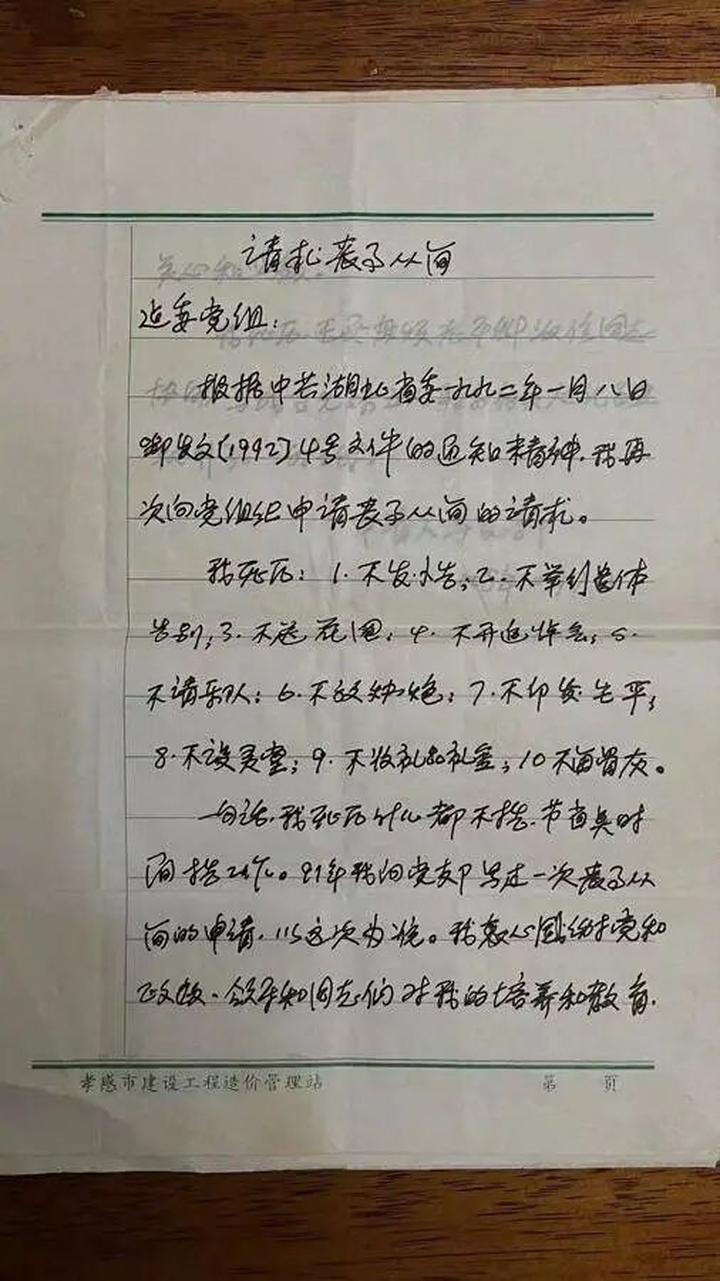 请求丧事从简
建委党组：
根据中共湖北省委一九九二年一月八日
鄂发文(1992)4号文件的通知精神，我再
次向党组织申请丧事从简的请求。
我死后：1.不发讣告；2.不举行遗体
告别；3.不送花圈；4.不开追悼会；5.
不请乐队；6.不放炮；7.不印发生平；
8.不设灵堂；9.不收礼品礼金；10不留骨灰。
一句话，我死后什么都不搞，节省其时
间搞工作。91年我向党支部写过一次丧事从
间的申请，以这次为准。我衷心感谢党和
政府、领导和同志们对我的培养和教育，
孝感市建设工程造价管理站
第 页